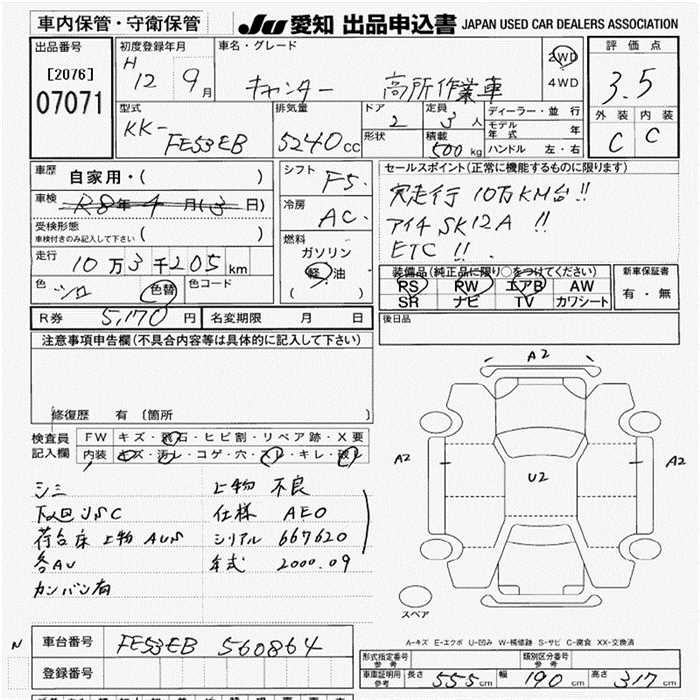 車内保管・守衛保管 JU 愛知 出品申込書 JAPAN USED CAR DEALERS ASSOCIATION
出品番号
[2076]
07071
初度登録年月
H 12 9月
車名・グレード
キャンター 高所作業車
2WD
4WD
評価点
3.5
外装 内装
C C
型式
KK-FE53EB
排気量
5240cc
ドア
2
形状
定員
3人
積載
500kg
ディーラー・並行
モデル年式 年
ハンドル 左・右
車歴
自家用・( )
車検
R8年4月(3日)
受検形態
車検付きのみ記入して下さい ( )
走行
10万3千205km
色
シロ
色替
色コード
シフト
F5.
冷房
AC.
燃料
ガソリン
軽・油
( )
セールスポイント(正常に機能するものに限ります)
実走行 10万KM台!!
アイチ SK12A !!
ETC !!
装備品(純正品に限り○をつけてください)
PS PW エアB AW
SR ナビ TV カワシート
新車保証書
有・無
R券 5,170円
名変期限 月 日
後日品
注意事項申告欄(不具合内容等は具体的に記入して下さい)
修復歴 有 〔箇所 〕
検査員記入欄
FW キズ・飛石・ヒビ割・リペア跡・X要
内装 キズ・汚レ・コゲ・穴・スレ・キレ・破レ
シミ
下回JSC
荷台床 上物 AUS
各AU
カンバン有
上物 不良
仕様 AEO
シリアル 667620
年式 2000.09
A2
A2
U2
A2
スペア
A-キズ E-エクボ U-凹み W-補修跡 S-サビ C-腐食 XX-交換済
N
車台番号 FE53EB 560864
登録番号
形式指定番号
参考
類別区分番号
参考
車庫証明用
参考
長さ 555cm 幅 190cm 高さ 317cm